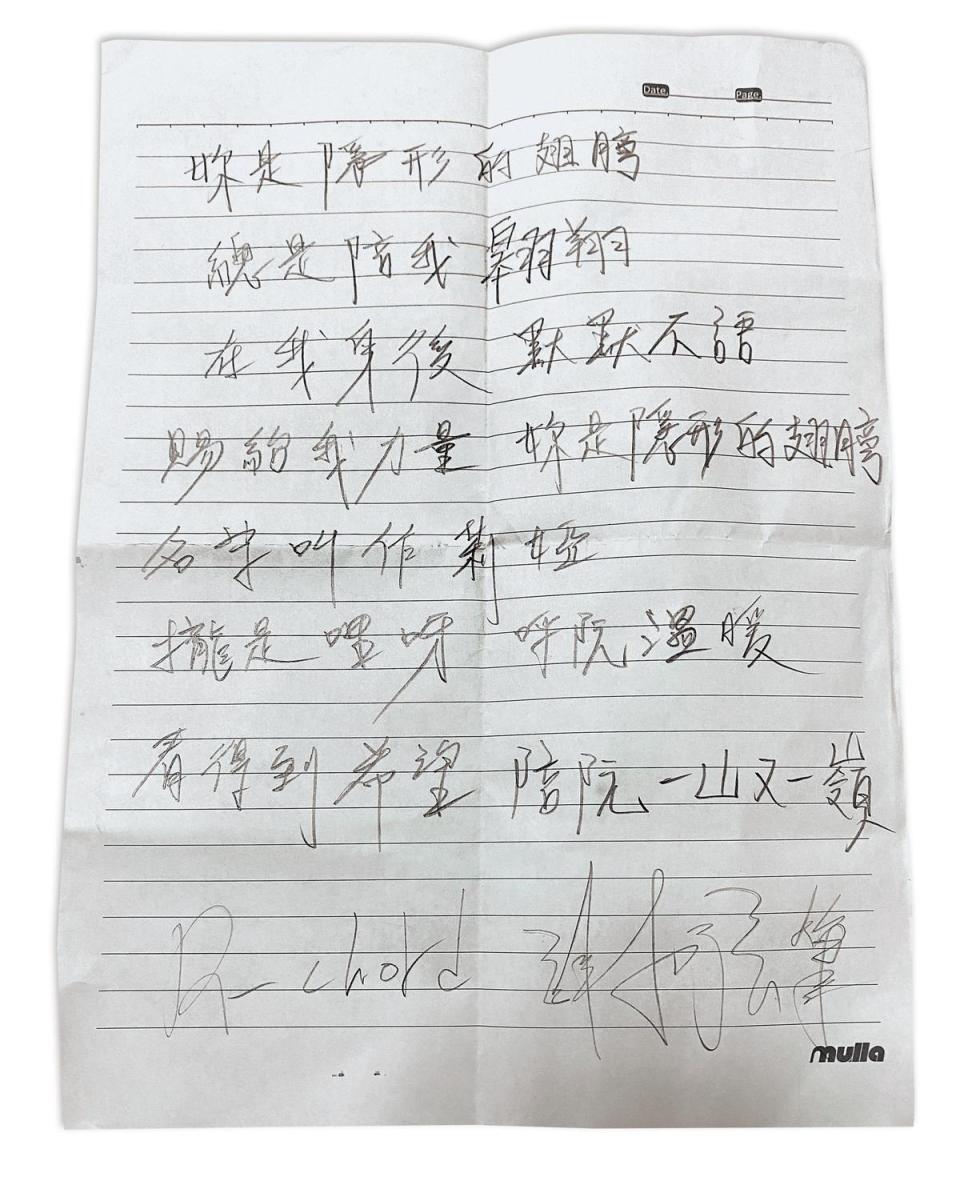 Date. Page.
妳是隱形的翅膀
總是陪我翱翔
在我身後 默默不語
賜給我力量 妳是隱形的翅膀
名字叫作莉婭
攏是 呀 呼阮溫暖
看得到希望 陪阮一山又一嶺
R-chord 謝和弦
mulla